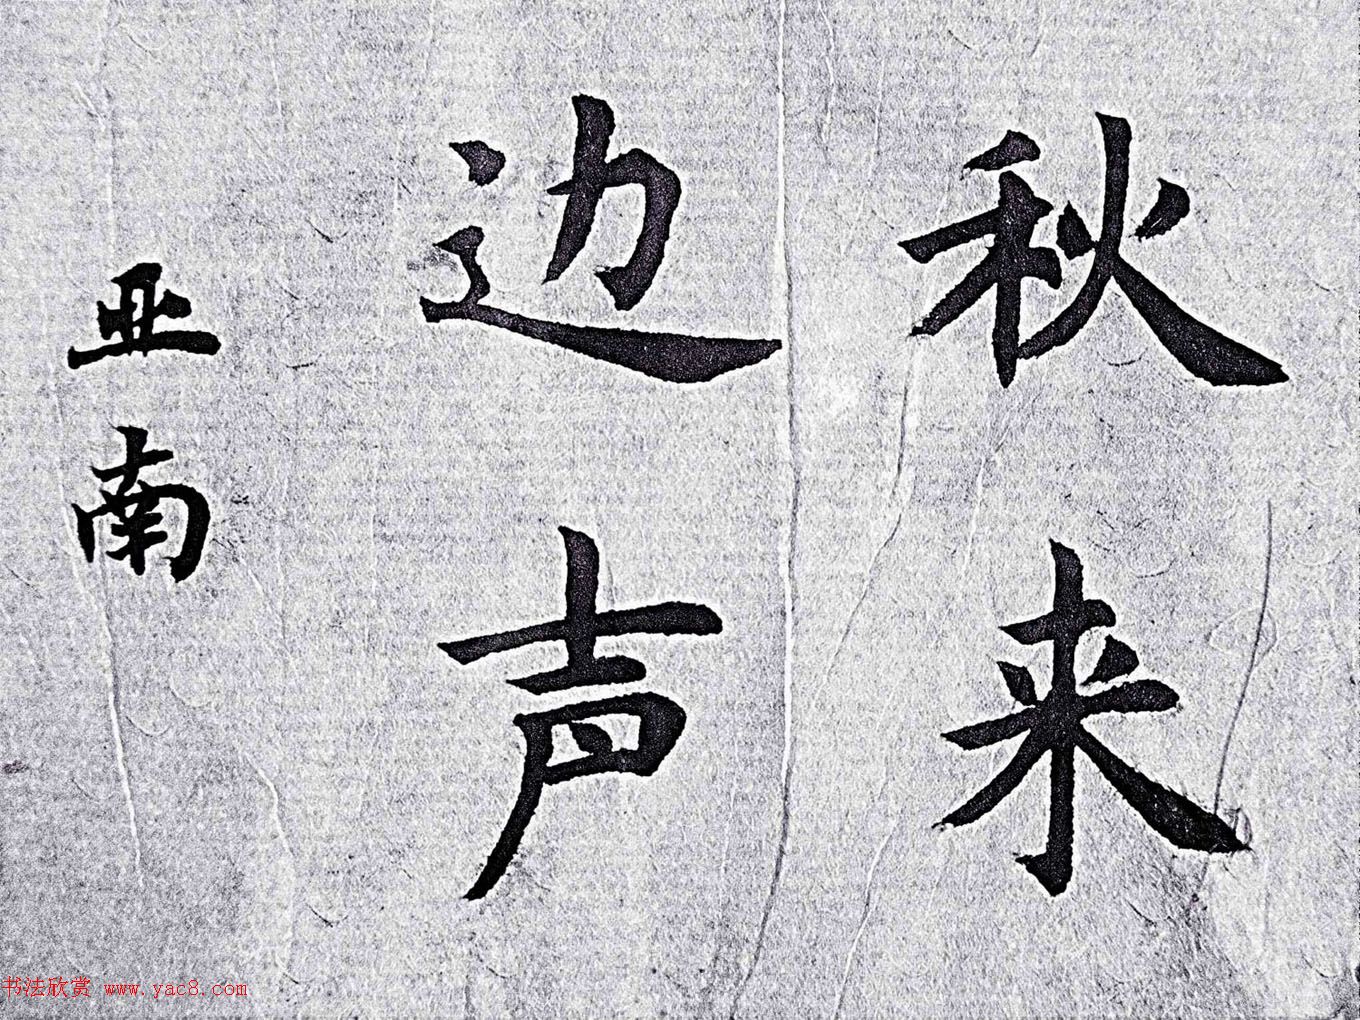 秋来
边声
亚南
书法欣赏 www.yac8.com